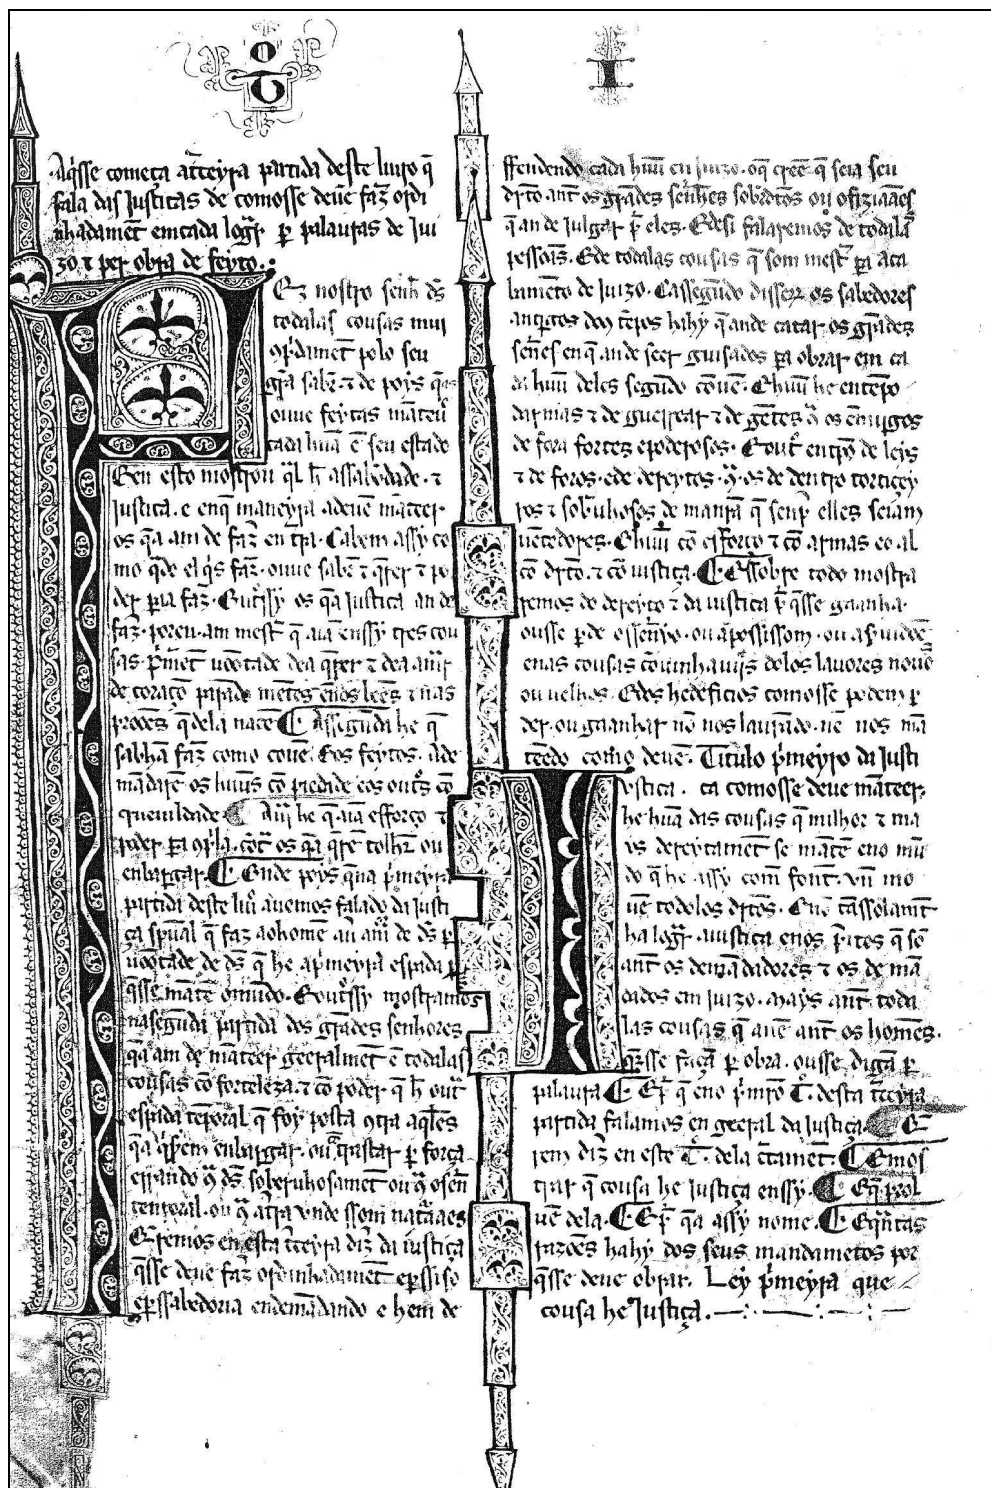 Aq̃sse começa at̃ceyra partida deste liuro q̃
fala das Justiças de comosse deuẽ faz̃ ordi
nhadamẽt em cada logar̃ ꝑ palauras de Jui
zo ⁊ per obra de feyto.
Ez nostro senh̃ d̃s
todalas cousas mui
polo seu
grã sab̃ ⁊ de poys q̃as
ouue feytas mãteu
cada huã ẽ seu estado
E en esto mostrou q̃l h̃ assabẽdade ⁊
Justiça. e enq̃ maneyra adeuẽ mãteer
os q̃a am de faz̃ en t̃ra. Ca bem assy co
mo q̃ de el q̃s faz̃. ouue sab̃ ⁊ q̃rer ⁊ po
der ꝑa faz̃. os q̃a Justiça an de
faz̃. poren. am mest̃ q̃ aiã enssy tres cou
sas. p̃met̃ uõtade dea q̃rer ⁊ dea amar
de coraçõ mẽtes ⁊ nas
q̃ dela nacẽ ¶ Assegũda he q̃
sabhã faz̃ como couẽ. Eos feytos. ade
mãdarẽ os huũs cõ piedade eos out̃s cõ
crueuldade. ¶ he q̃ aiã efforço ⁊
poder ꝑa os q̃a q̃rẽ tolh̃r ou
enbargar. ¶ Onde poys q̃ na p̃meyra
partida deste liũ auemos falado da Justi
ça sp̃ual q̃ faz aohomẽ de d̃s ꝑ
uõtade de d̃s q̃ he ap̃meyra espada ꝑ
q̃sse mãtẽ omũdo. Eout̃ssy mostramos
nasegũda partida dos grãdes senhores
q̃a am de mãteer geeralmẽt ẽ todalas
cousas cõ forteleza. ⁊ cõ poder q̃ h̃ out̃
espada tẽporal q̃ foy posta aq̃les
q̃a enbargar. ou cõtrastar ꝑ força
errãdo d̃s soberuhosamẽt ou
tenporal. ou at̃ra vnde ssom natãaes
Q̃remos en esta t̃ceyra diz̃ da iustiça
q̃sse deue faz̃ ordinhadamẽt
eperssabedoria endemãdando e hem de
ffendendo cada huũ en juizo. oq̃ creẽ q̃ seia seu
dr̃to ant̃ os grãdes senh̃es ou ofiziaães
q̃ an de Julgar p̃ eles. Edesi falaremos de todalas
pessoãs. Ede todalas cousas q̃ som mest̃ ꝑa aca
bamẽto de juizo. Cassegũdo disserõ os sabedores
antigos dous tẽpos hahy q̃ ande catar os grãdes
senh̃es en q̃ an de seer guisados ꝑa obrar em ca
da huũ deles segũdo cõuẽ. Ehuũ he entẽpo
darmas ⁊ de guerrear ⁊ de gẽtes os ẽmigos
de fora fortes epoderosos. E out̃ entp̃o de leys
⁊ de foros. ede dereytos. os de dentro tortiçey
ros ⁊ sob̃uhosos de maneyra q̃ senp̃ elles seiam
uẽcedores. Ehuũ cõ efforço ⁊ cõ armas eo al
cõ dr̃to. ⁊ cõ iustiça. ¶ E ssobre todo mostra
remos do dereyto ⁊ da iustiça p̃ q̃sse gaanha.
ousse ꝑde ossenhyo. ou apossissom. ou
enas cousas cõuinhauijs delos lauores nouos
ou uelhos. Edos hedeficios comosse podem ꝑ
der. ou guanhar nõ nos laurãdo. nẽ nos mã
teẽdo como deuẽ. Titulo p̃meyro da Justi
Vstiça. ca comosse deue mãteer
he huã das cousas q̃ milhor ⁊ ma
ys dereytamẽt se mãtẽ eno mũ
do q̃ he assy comõ font. vn mo
uẽ todolos dr̃tos. Enõ tãssolamẽt
ha logar aiustiça enos p̃itos q̃ sõ
ant̃ os demãdadores ⁊ os demã
dados em juizo. Mays ant̃ toda
las cousas q̃ auẽ ant̃ os homẽs.
q̃rsse façã ꝑ obra. ousse digã ꝑ
palaura ¶ E p̃ q̃ eno p̃meyro T̃. desta t̃ceyra
partida falamos en geeral da Justiça ¶ Q̃
rem diz̃ en este T̃. dela c̃tamẽt. ¶ E mos
trar q̃ cousa he justiça enssy. ¶ E q̃ prol
uẽ dela. ¶ E p̃ q̃a assy nome. ¶ E q̃ntas
razoẽs hahy dos seus mandamẽtos por
q̃sse deue obrar. Ley p̃meyra que
cousa he Justiça.